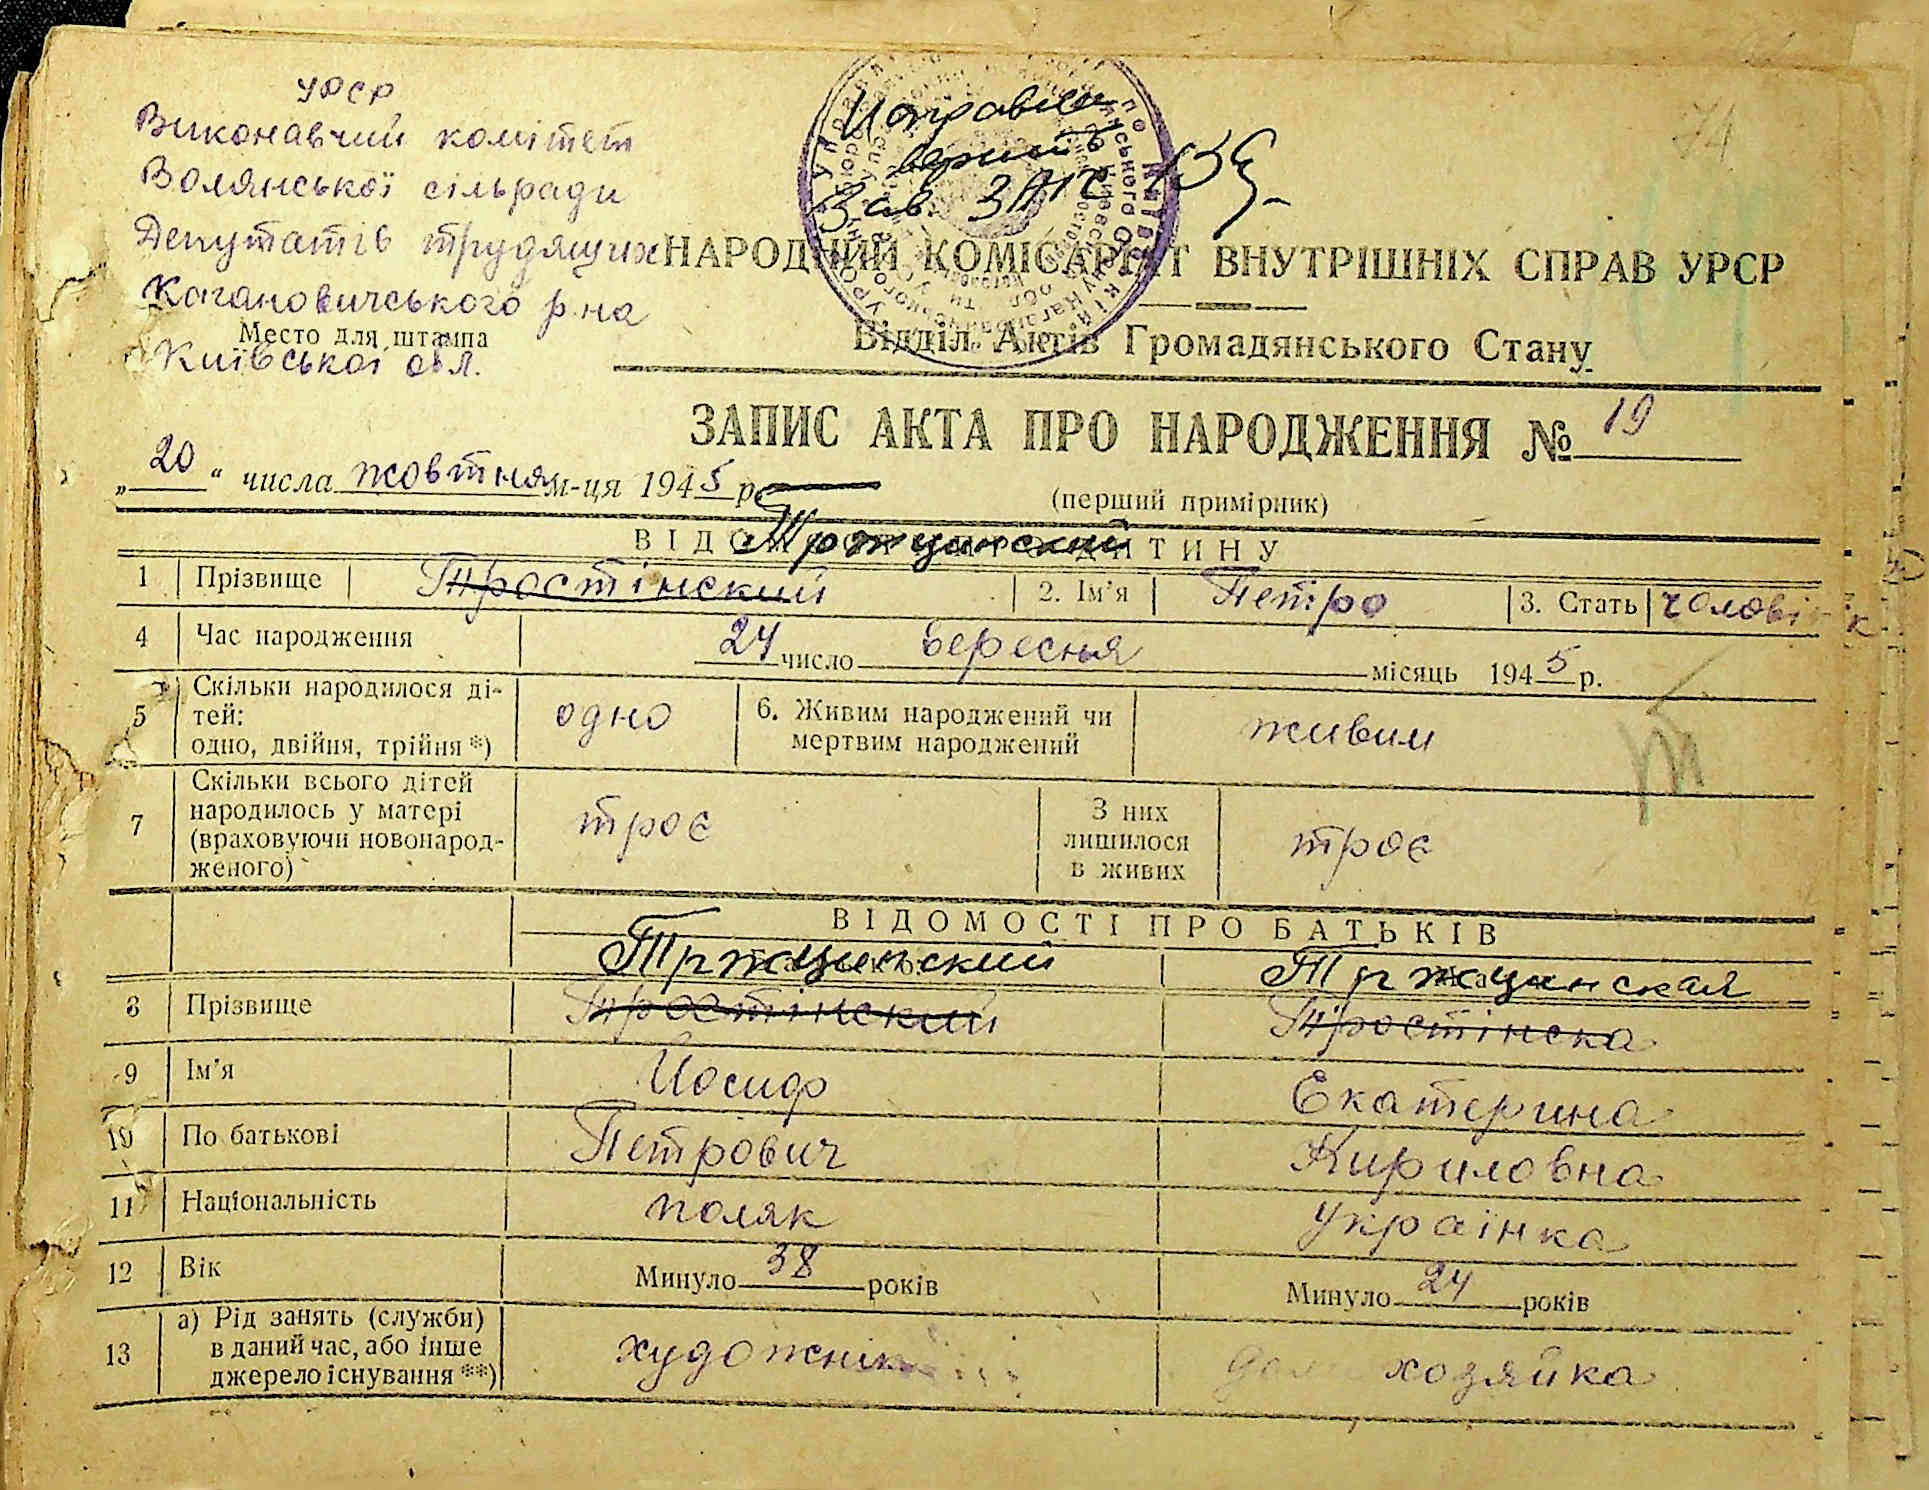 УРСР
Виконавчий комітет
Волянської сільради
Депутатів трудящих
Кагановичського р-на
Место для штампа
Київської обл.
Исправлен
верить
Зав. ЗАГС
74
НАРОДНИЙ КОМІСАРІАТ ВНУТРІШНІХ СПРАВ УРСР
Відділ Актів Громадянського Стану
ЗАПИС АКТА ПРО НАРОДЖЕННЯ № 19
„20“ числа жовтня м-ця 1945 р.
(перший примірник)
Тржцинский
ВІДОМОСТІ ПРО ДИТИНУ
1 Прізвище Тростінский 2. Ім'я Петро 3. Стать чоловік
4 Час народження 24 число вересня місяць 1945 р.
5 Скільки народилося ді-
тей:
одно, двійня, трійня *) одно 6. Живим народжений чи
мертвим народжений живим
7 Скільки всього дітей
народилось у матері
(враховуючи новонарод-
женого) троє З них
лишилося
в живих троє
ВІДОМОСТІ ПРО БАТЬКІВ
Тржцинский Тржцинская
8 Прізвище Тростінский Тростінска
9 Ім'я Йосиф Екатерина
10 По батькові Петрович Кириловна
11 Національність поляк українка
12 Вік Минуло 38 років Минуло 24 років
13 а) Рід занять (служби)
в даний час, або інше
джерело існування **) художнік дом хозяйка